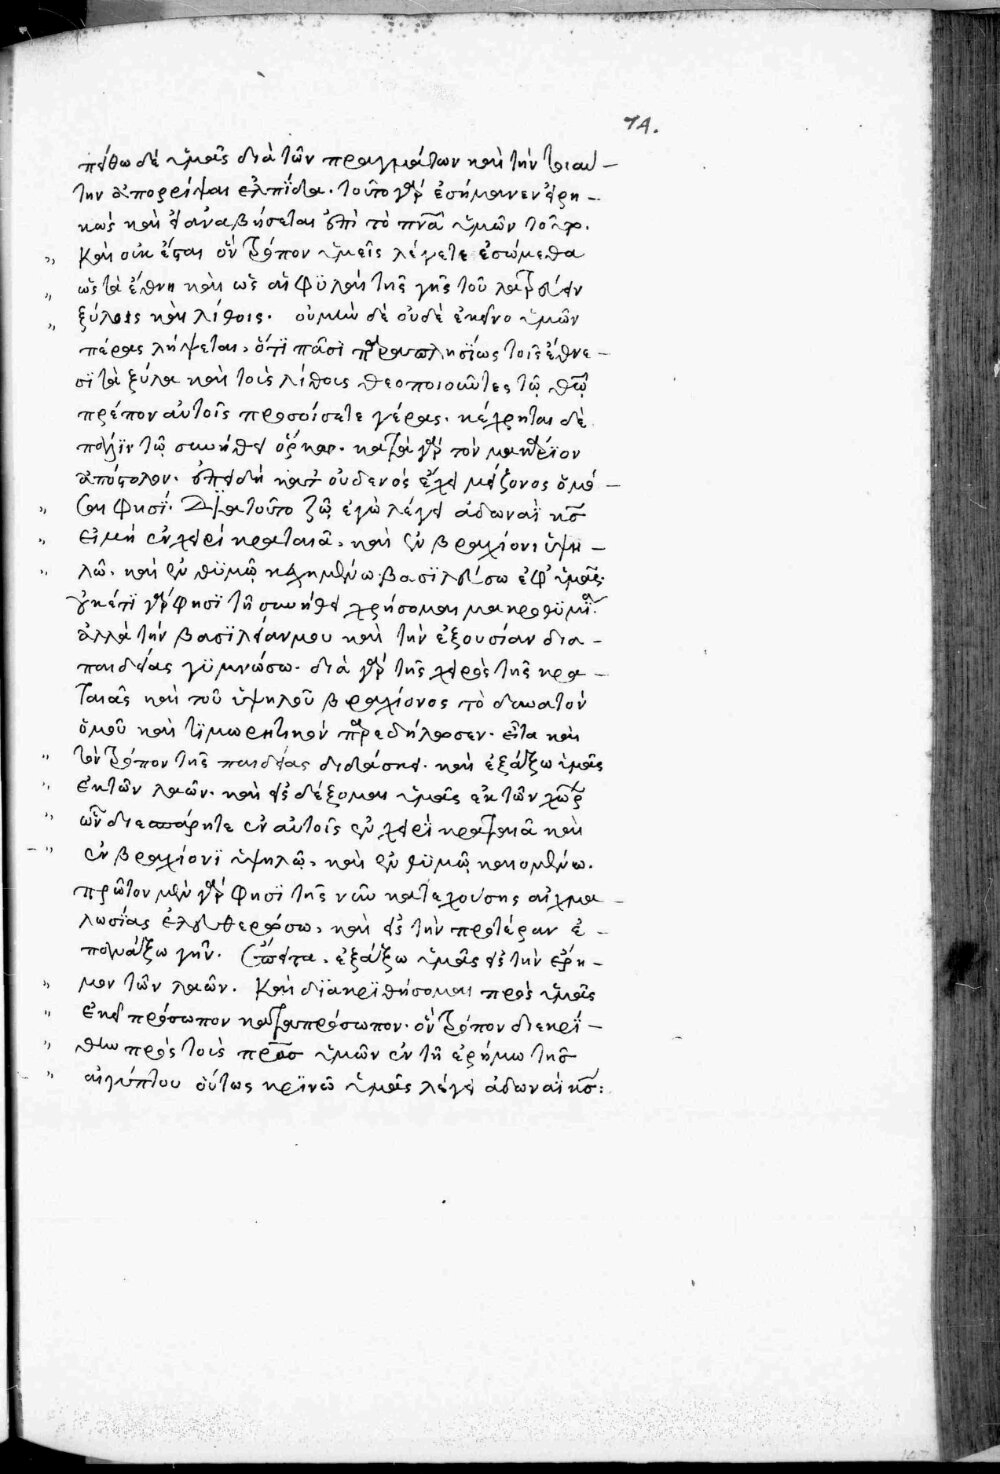 74.
πείθω δὲ ὑμᾶς διὰ τῶν πραγμάτων καὶ τὴν τοιαύ-
την ἀπορρίψαι ἐλπίδα. τοῦτο γὰρ ἐσήμανεν εἰρη-
κὼς καὶ εἰ ἀναβήσεται ἐπὶ τὸ πνᾶ ὑμῶν τοῦτο.
" Καὶ οὐκ ἔσται ὃν τρόπον ὑμεῖς λέγετε ἐσώμεθα
" ὡς τὰ ἔθνη καὶ ὡς αἱ φϋλαὶ τῆς γῆς τοῦ λατρεύειν
" ξύλοις καὶ λίθοις. οὐ μὴν δὲ οὐδὲ ἐκεῖνο ὑμῶν
πέρας λήψεται, ὅτι πᾶσϊ παραπλησϊως τοῖς ἔθνε-
σϊ τὰ ξύλα καὶ τοὺς λίθους θεοποιοῦντες τῶ θῶ
πρέπον αὐτοῖς προσοίσετε γέρας. κέχρηται δὲ
πάλϊν τῶ συνήθει ὅρκω. κατὰ γὰρ τὸν μακάρϊον
ἀπόστολον. ἐπειδὴ κατ οὐδενὸς εἶχε μείζονος ὀμό-
" σαι φησϊ. Διατοῦτο ζῶ ἐγὼ λέγει ἀδωναϊ κς
" εἰ μὴ ἐν χειρὶ κραταιᾶ, καὶ ἐν βραχίονι ὑψη-
" λῶ. καὶ ἐν θϋμῶ κεχημένω βασϊλεύσω ἐφ ὑμᾶς.
οὐκέτϊ γὰρ φησϊ τῆ συνήθει χρήσομαι μακροθϋμία.
ἀλλὰ τὴν βασϊλείαν μου καὶ τὴν ἐξουσίαν δια-
παιδείας γϋμνώσω. διὰ γὰρ τῆς χειρὸς τῆς κρα-
ταιᾶς καὶ τοῦ ὑψηλοῦ βραχίονος τὸ δυνατὸν
ὁμοῦ καὶ τϊμωρητικὸν παρεδήλωσεν. εἶτα καὶ
" τὸν τρόπον τῆς παιδείας διδάσκει. καὶ ἐξάξω ὑμᾶς
" ἐκ τῶν λαῶν. καὶ εἰσδέξομαι ὑμᾶς ἐκ τῶν χωρῶν
" ὧν διεσπάρητε ἐν αὐτοῖς ἐν χειρὶ κραταιᾶ καὶ
" ἐν βραχίονϊ ὑψηλῶ, καὶ ἐν θϋμῶ καιομένω.
πρῶτον μὲν γὰρ φησϊ τῆς νῦν κατεχούσης αἰχμα-
λωσίας ἐλευθερώσω, καὶ εἰς τὴν προτέραν ἐ-
πανάξω γῆν. ἔπειτα. ἐξάξω ὑμᾶς εἰς τὴν ἔρη-
" μον τῶν λαῶν. Καὶ διακρϊθήσομαι πρὸς ὑμᾶς
" ἐκεῖ πρόσωπον κατὰ πρόσωπον. ὃν τρόπον διεκρϊ-
" θην πρὸς τοὺς πρας ὑμῶν ἐν τῆ ἐρήμω τῆς
" αἰγύπτου οὕτως κρϊνῶ ὑμᾶς λέγει ἀδωναϊ κς: